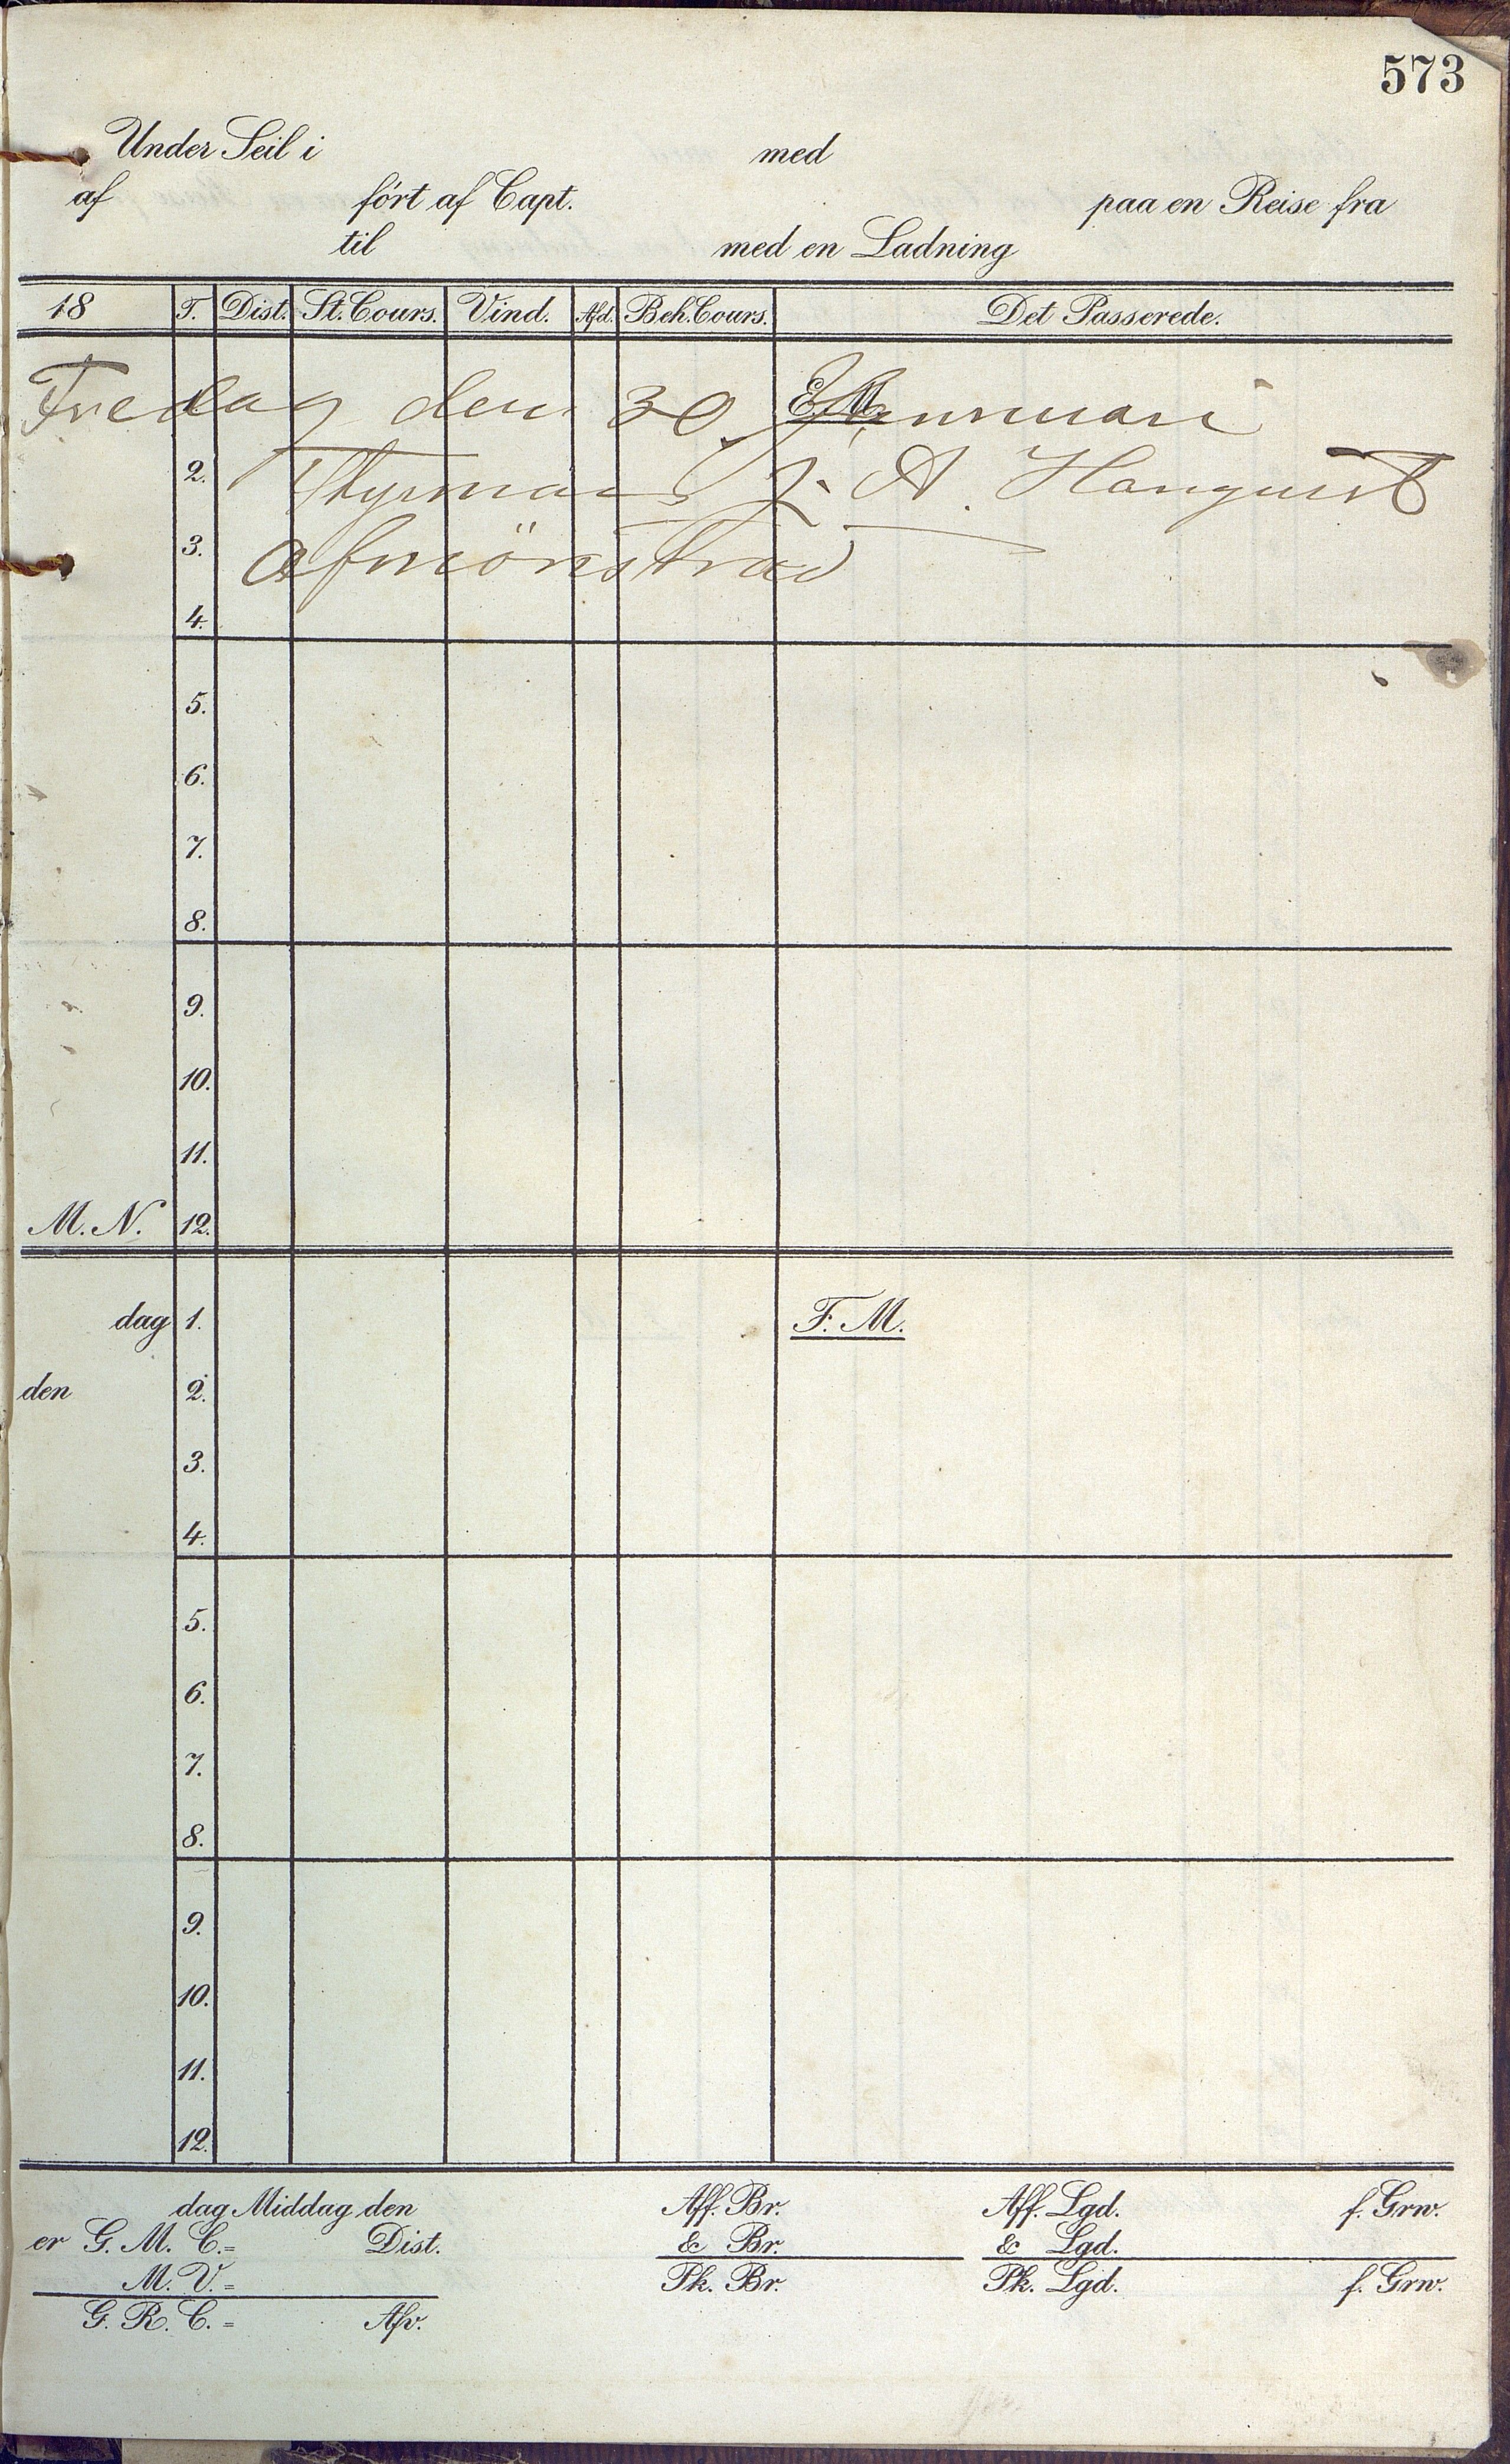 573
Under Seil i med
af ført af Capt. paa en Reise fra
til med en Ladning
18 T. Dist. St. Cours. Vind. Afd. Beh. Cours. Det Passerede.
Fredag den 30 Januari
1. E. M.
2. Styrman J. A. Hanquist
3. Afmönstrad
4.
5.
6.
7.
8.
9.
10.
11.
M. N. 12.
dag 1. F. M.
den 2.
3.
4.
5.
6.
7.
8.
9.
10.
11.
12.
dag Middag den Aff. Br. Aff. Lgd. f. Grw.
er G. M. C.= Dist. & Br. & Lgd.
M. V.= Pk. Br. Pk. Lgd. f. Grw.
G. R. C.= Afv.